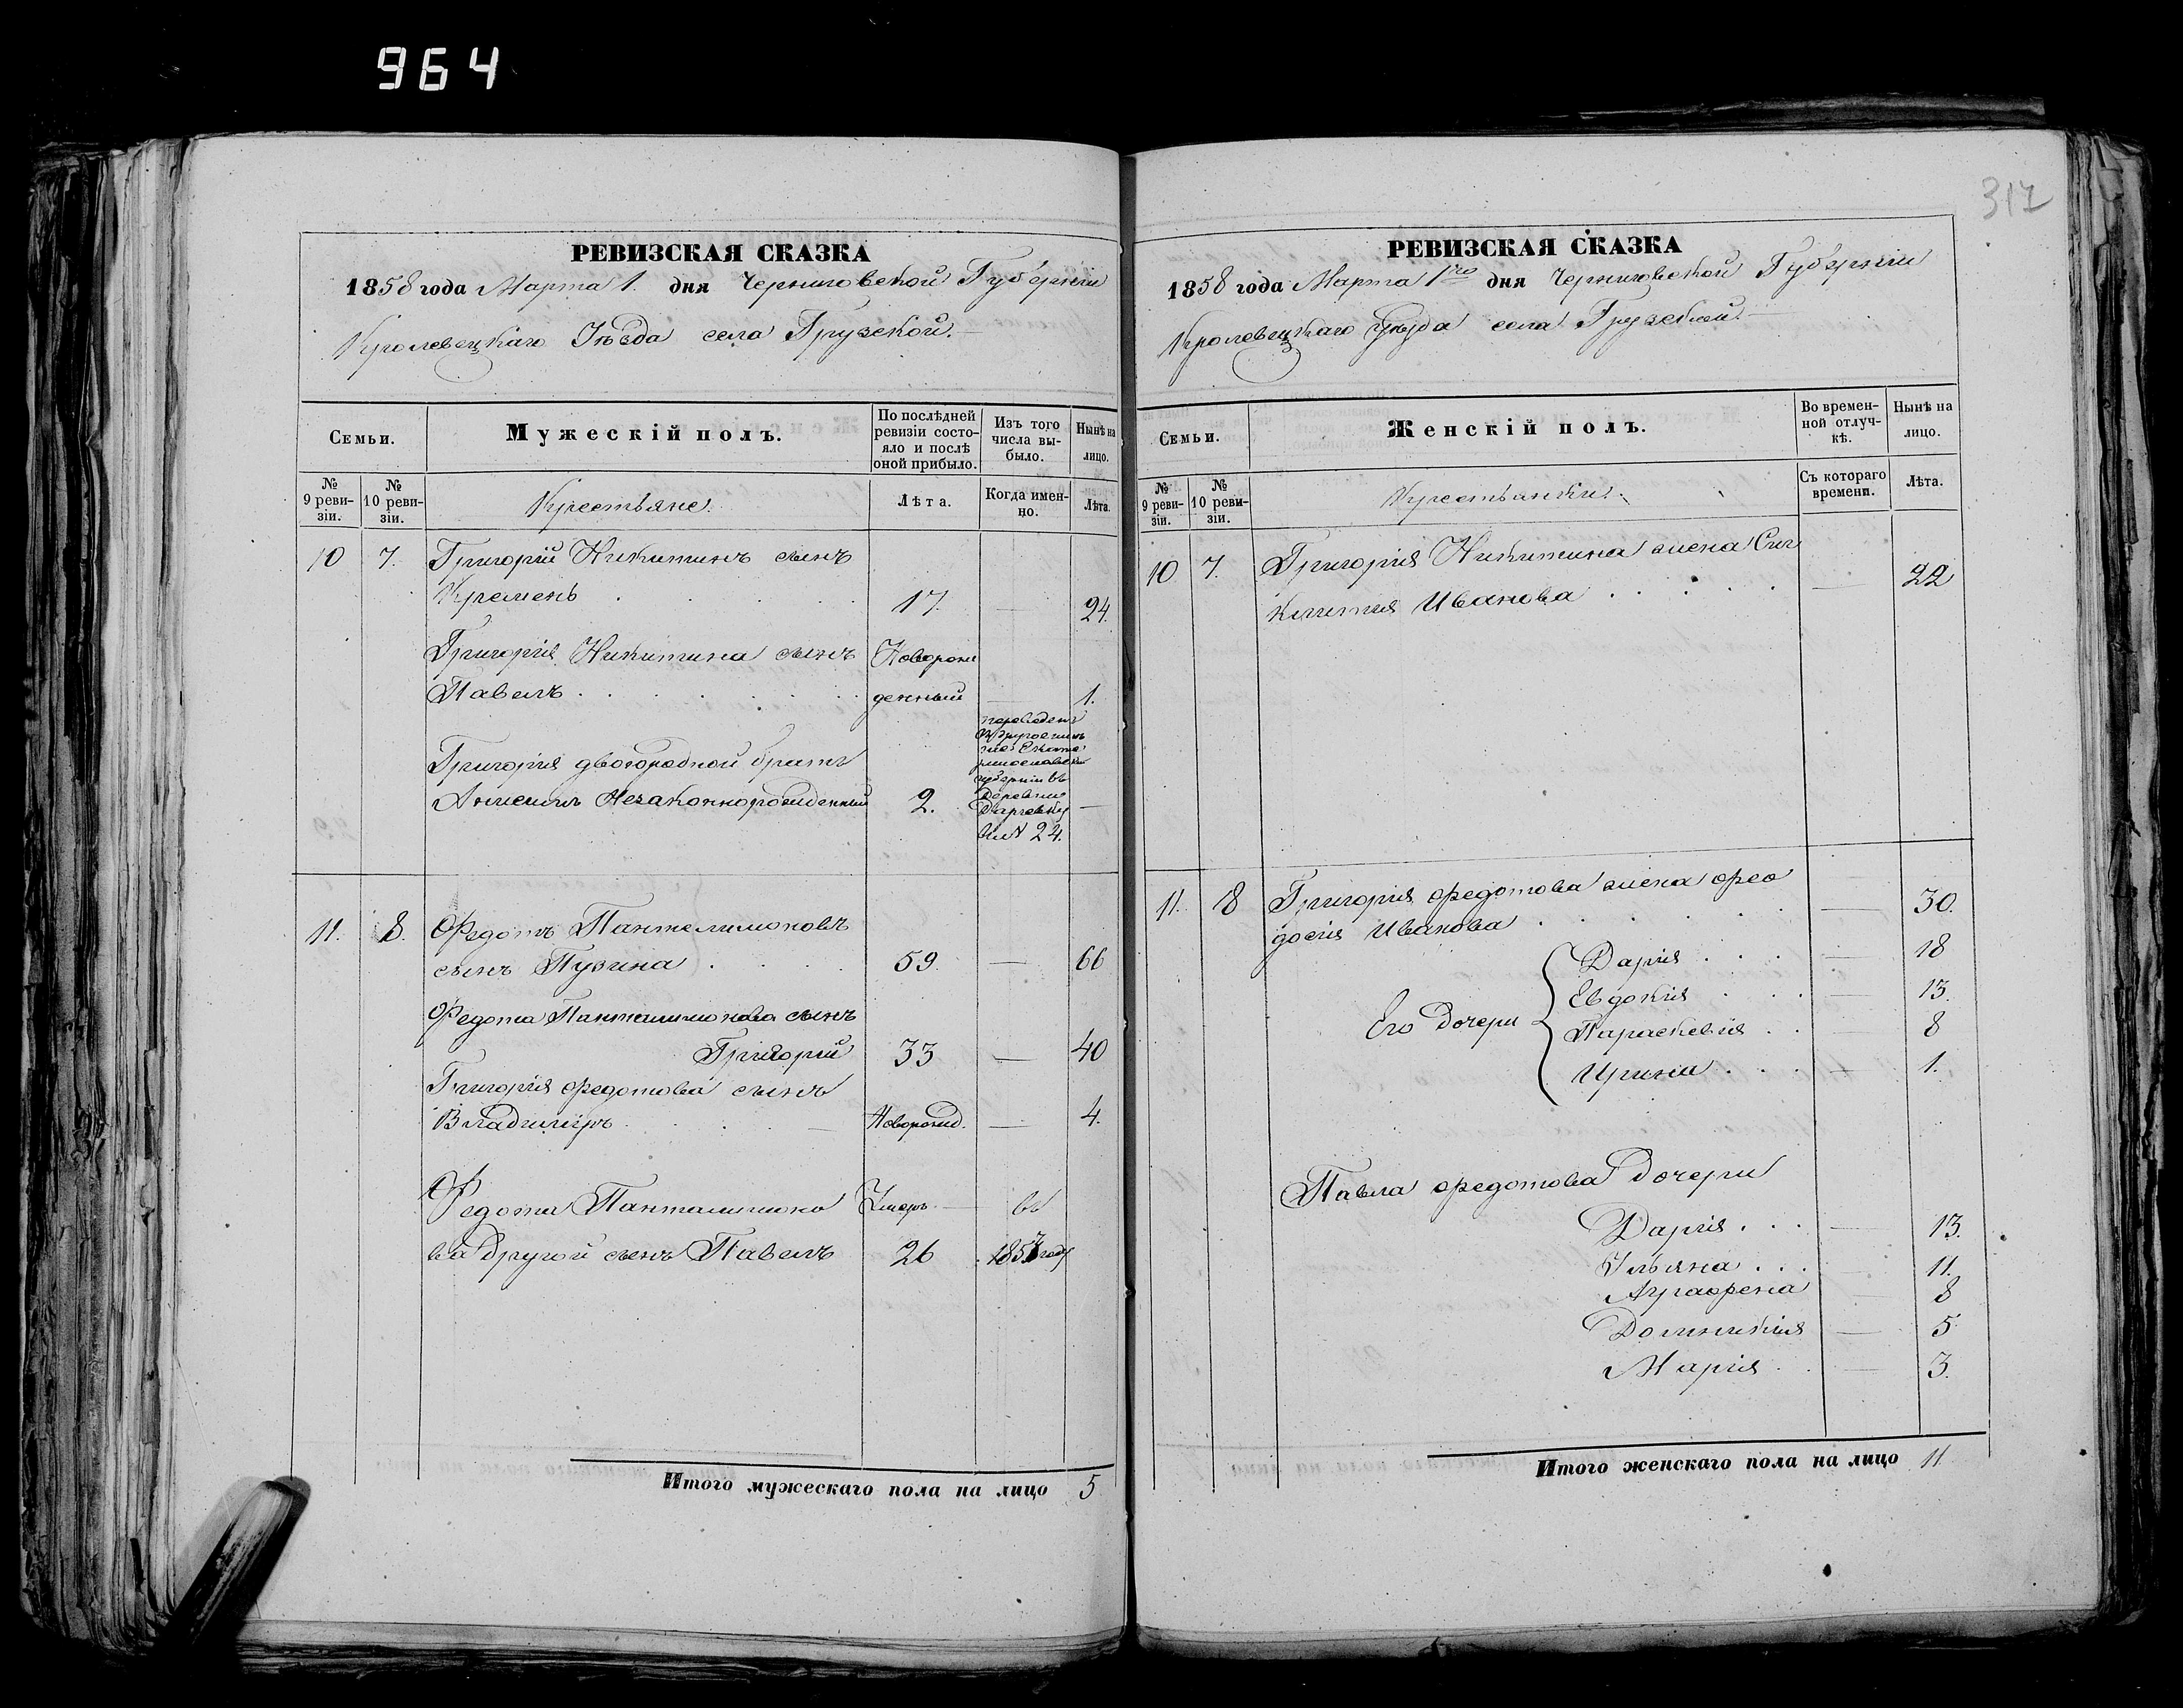 964
317
РЕВИЗСКАЯ СКАЗКА
1858 года Марта 1. дня Черниговской Губерніи
Кролевецкаго Уѣзда села Грузской.
Семьи.
Мужескій полъ.
По послѣдней ревизіи состояло и послѣ оной прибыло.
Изъ того числа выбыло.
Нынѣ на лицо.
№ 9 ревизіи.
№ 10 ревизіи.
Крестьяне.
Лѣта.
Когда именно.
Лѣта.
10 7. Григорій Никитинъ сынъ
Кремень 17. — 24.
Григорія Никитина сынъ Новорож
Павелъ денный — 1.
Григорія двоюродной братъ
Анисимъ Незаконнорожденный 2. —
переведенъ
въ другое имѣ
ніе Екате
ринославской
губерніи въ
Деревню
24.
11. 8. Федотъ Пантелимоновъ
сынъ Пузина 59. — 66
Федота Пантелимонова сынъ
Григорій 33 — 40
Григорія Федотова сынъ
Владимиръ Новорожд. — 4.
Федота Пантелимоно Умеръ въ
ва другой сынъ Павелъ 26 1857 году
Итого мужескаго пола на лицо 5
РЕВИЗСКАЯ СКАЗКА
1858 года Марта 1го дня Черниговской Губерніи
Кролевецкаго Уѣзда села Грузской.
Семьи.
Женскій полъ.
Во временной отлучкѣ.
Нынѣ на лицо.
№ 9 ревизіи.
№ 10 ревизіи.
Крестьянки.
Съ котораго времени.
Лѣта.
10 7. Григорія Никитина жена Син
клитія Иванова — 22
11. 8 Григорія Федотова жена Фео
досія Иванова — 30.
Его дочери
Дарія — 18
Евдокія — 13.
Параскевія — 8
Ирина — 1.
Павла Федотова Дочери
Дарія — 13.
Ульяна — 11.
Аграфена — 8
Домникія — 5
Марія — 3.
Итого женскаго пола на лицо 11